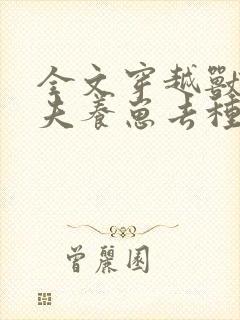 全文穿越獸
夫養崽去種
曾麗園